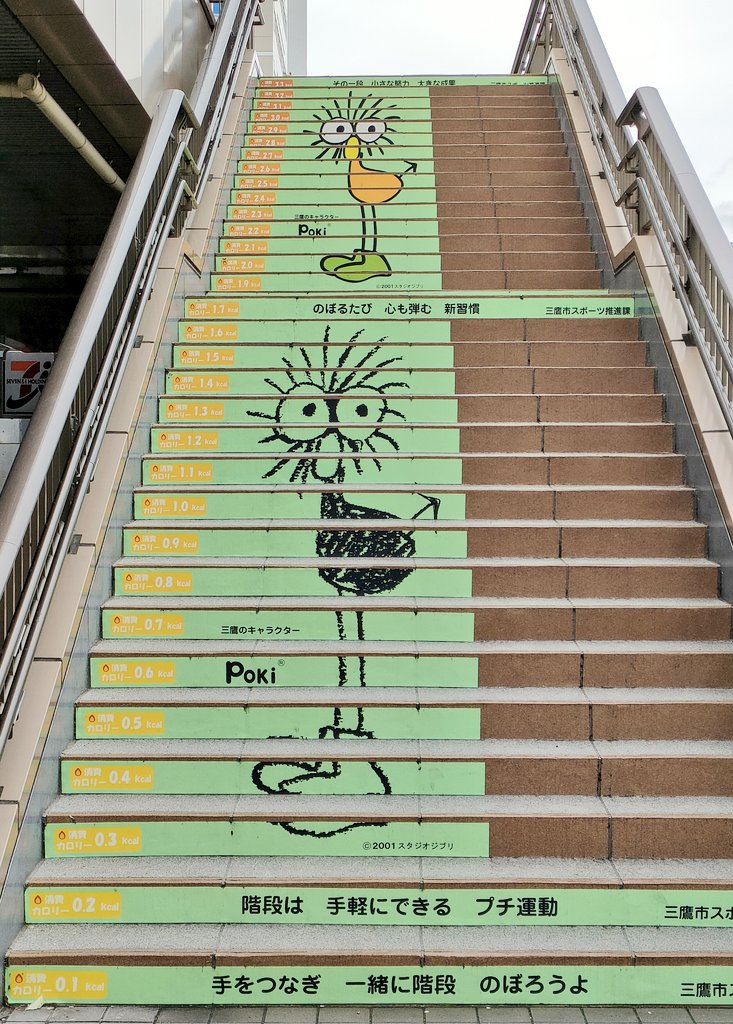 消費カロリー 3.3 kcal その一段 小さな努力 大きな成果
消費カロリー 3.2 kcal
消費カロリー 3.1 kcal
消費カロリー 3.0 kcal
消費カロリー 2.9 kcal
消費カロリー 2.8 kcal
消費カロリー 2.7 kcal
消費カロリー 2.6 kcal
消費カロリー 2.5 kcal
消費カロリー 2.4 kcal
消費カロリー 2.3 kcal 三鷹のキャラクター
消費カロリー 2.2 kcal POKi®
消費カロリー 2.1 kcal
消費カロリー 2.0 kcal
消費カロリー 1.9 kcal ©2001スタジオジブリ
消費カロリー 1.7 kcal のぼるたび 心も弾む 新習慣 三鷹市スポーツ推進課
消費カロリー 1.6 kcal
消費カロリー 1.5 kcal
SEVEN & i HOLDIN
消費カロリー 1.4 kcal
消費カロリー 1.3 kcal
消費カロリー 1.2 kcal
消費カロリー 1.1 kcal
消費カロリー 1.0 kcal
消費カロリー 0.9 kcal
消費カロリー 0.8 kcal
消費カロリー 0.7 kcal 三鷹のキャラクター
消費カロリー 0.6 kcal POKi®
消費カロリー 0.5 kcal
消費カロリー 0.4 kcal
消費カロリー 0.3 kcal ©2001スタジオジブリ
消費カロリー 0.2 kcal 階段は 手軽にできる プチ運動 三鷹市スポ
消費カロリー 0.1 kcal 手をつなぎ 一緒に階段 のぼろうよ 三鷹市ス